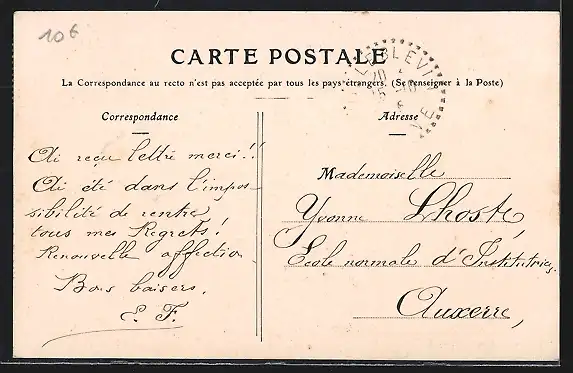 10€
CARTE POSTALE
La Correspondance au recto n'est pas acceptée par tous les pays étrangers. (Se renseigner à la Poste)
Correspondance
Ai reçu lettre merci!!
Ai été dans l'impos-
sibilité de rentrer
tous mes Regrets!
Renouvelle affection
Bons baisers.
E. F.
Adresse
Mademoiselle
Yvonne Lhoste,
Ecole normale d'Institutrices.
Auxerre,